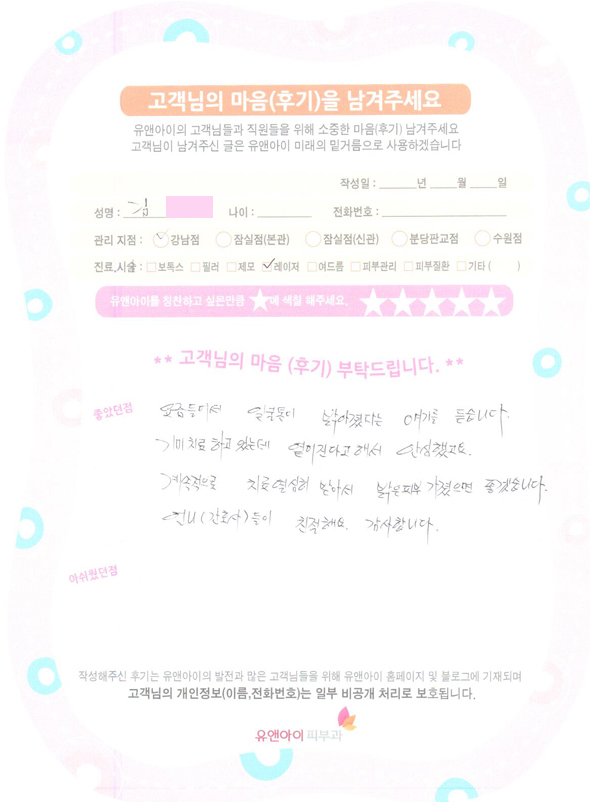 고객님의 마음(후기)을 남겨주세요
유앤아이의 고객님들과 직원들을 위해 소중한 마음(후기) 남겨주세요
고객님이 남겨주신 글은 유앤아이 미래의 밑거름으로 사용하겠습니다
작성일 : ______년 ____월 ____일
성명 : 김 나이 : ________ 전화번호 : ________
관리 지점 : 강남점 잠실점(본관) 잠실점(신관) 분당판교점 수원점
진료,시술 : 보톡스 필러 제모 레이저 여드름 피부관리 피부질환 기타 ( )
유앤아이를 칭찬하고 싶은만큼 ★에 색칠 해주세요. ★★★★★
** 고객님의 마음 (후기) 부탁드립니다. **
좋았던점
요즘들어서 얼굴톤이 밝아졌다는 얘기를 듣습니다.
기미치료 하고 있는데 옅어진다고 해서 안심했고요.
계속적으로 치료 열심히 받아서 밝은피부 가졌으면 좋겠습니다.
언니(간호사)들이 친절해요. 감사합니다.
아쉬웠던점
작성해주신 후기는 유앤아이의 발전과 많은 고객님들을 위해 유앤아이 홈페이지 및 블로그에 기재되며
고객님의 개인정보(이름,전화번호)는 일부 비공개 처리로 보호됩니다.
유앤아이 피부과